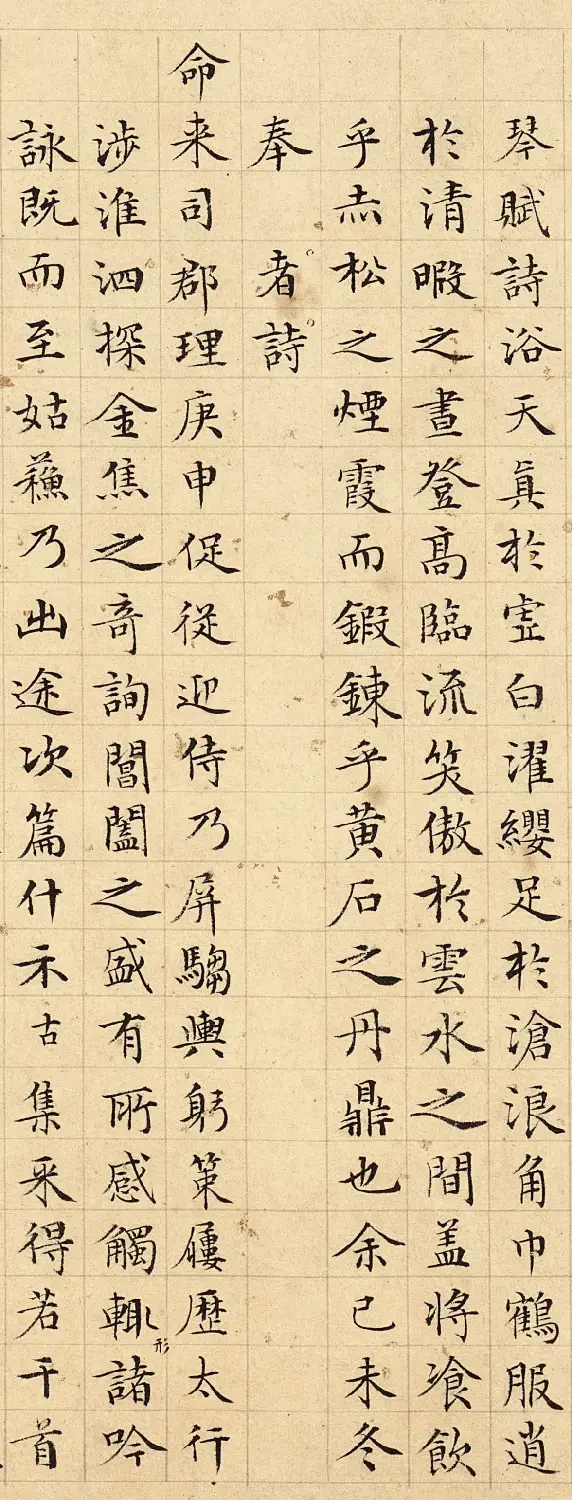 琴賦詩浴天眞於虛白濯纓足於滄浪角巾鶴服逍
於清暇之晝登髙臨流笑傲於雲水之間盖将飡飲
乎赤松之煙霞而鍛鍊乎黄石之丹鼎也余己未冬
奉者詩
命来司郡理庚申促從迎侍乃屏騶輿躬策屨歷太行
涉淮泗探金焦之奇詢閶闔之盛有所感觸輙形諸吟
詠既而至姑蘓乃出途次篇什示古集采得若干首